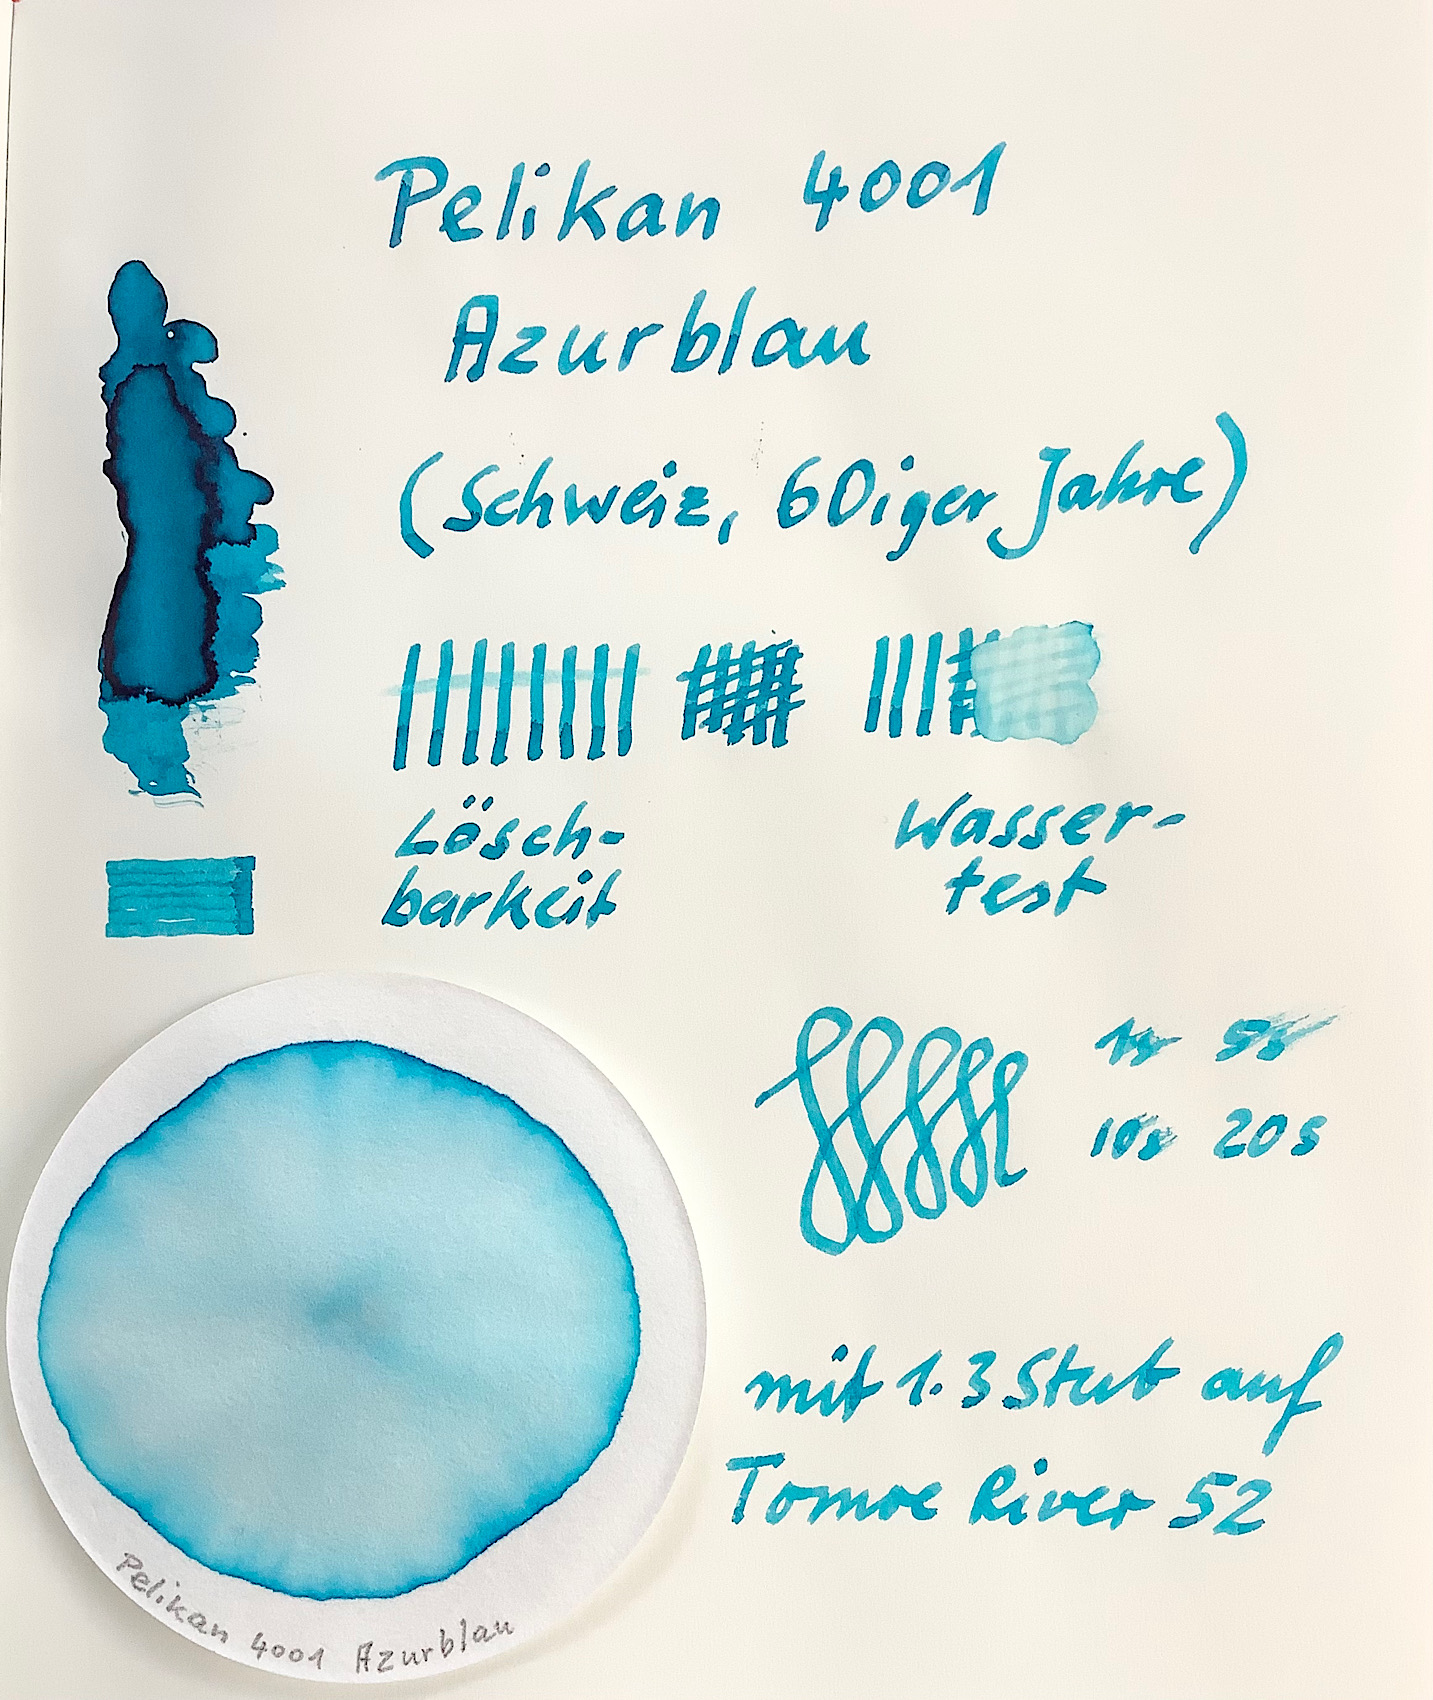 Pelikan 4001
Azurblau
(Schweiz, 60iger Jahre)
Lösch-
barkeit
Wasser-
test
1s 5s
10s 20s
mit 1.3 Stub auf
Tomoe River 52
Pelikan 4001 Azurblau